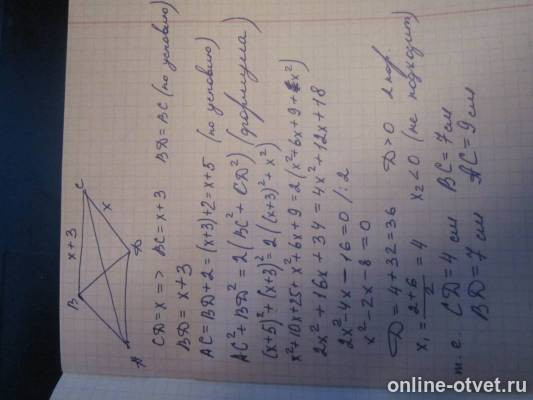 B x+3 C
x
A D
CD = x => BC = x+3 BD = BC (по условию)
BD = x+3
AC = BD+2 = (x+3)+2 = x+5 (по условию)
AC² + BD² = 2(BC² + CD²) (формула)
(x+5)² + (x+3)² = 2((x+3)² + x²)
x²+10x+25+x²+6x+9 = 2(x²+6x+9+x²)
2x²+16x+34 = 4x²+12x+18
2x²-4x-16=0 /:2
x²-2x-8=0
D = 4+32=36 D>0 2 кор.
x₁ = 2+6/2 = 4 x₂<0 (не подходит)
т.е. CD = 4 см BC = 7 см
BD = 7 см AC = 9 см
online-otvet.ru